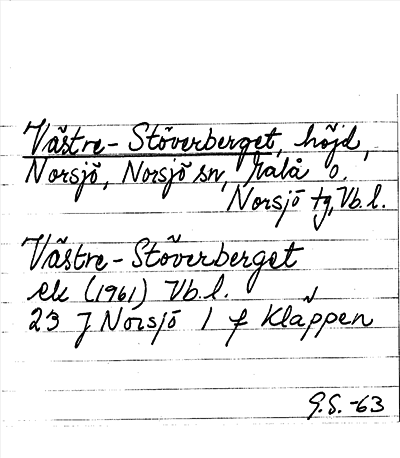 Västre-Stöverberget, höjd,
Norsjö, Norsjö sn, Malå o.
Norsjö tg, Vb.l.
Västre-Stöverberget
ek (1961) Vb.l.
23 J Norsjö 1 f Kläppen
G.S. -63